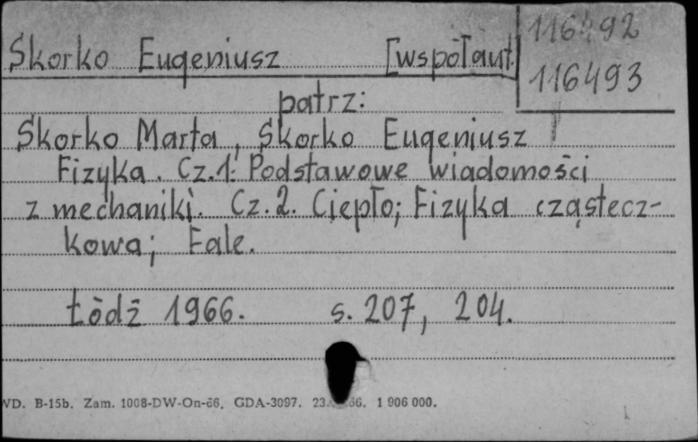 116492
Skorko Eugeniusz [współaut.
116493
patrz:
Skorko Marta, Skorko Eugeniusz
Fizyka. Cz.1: Podstawowe wiadomości
z mechaniki. Cz.2. Ciepło; Fizyka cząstecz-
kowa; Fale.
Łódź 1966. s. 207, 204.
WD. B-15b. Zam. 1008-DW-On-66. GDA-3097. 1 906 000.